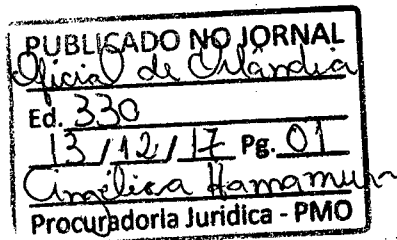 PUBLICADO NO JORNAL
Oficial de Orlândia
Ed. 330
13/12/17 Pg. 01
Angélica Hamamura
Procuradoria Juridica - PMO